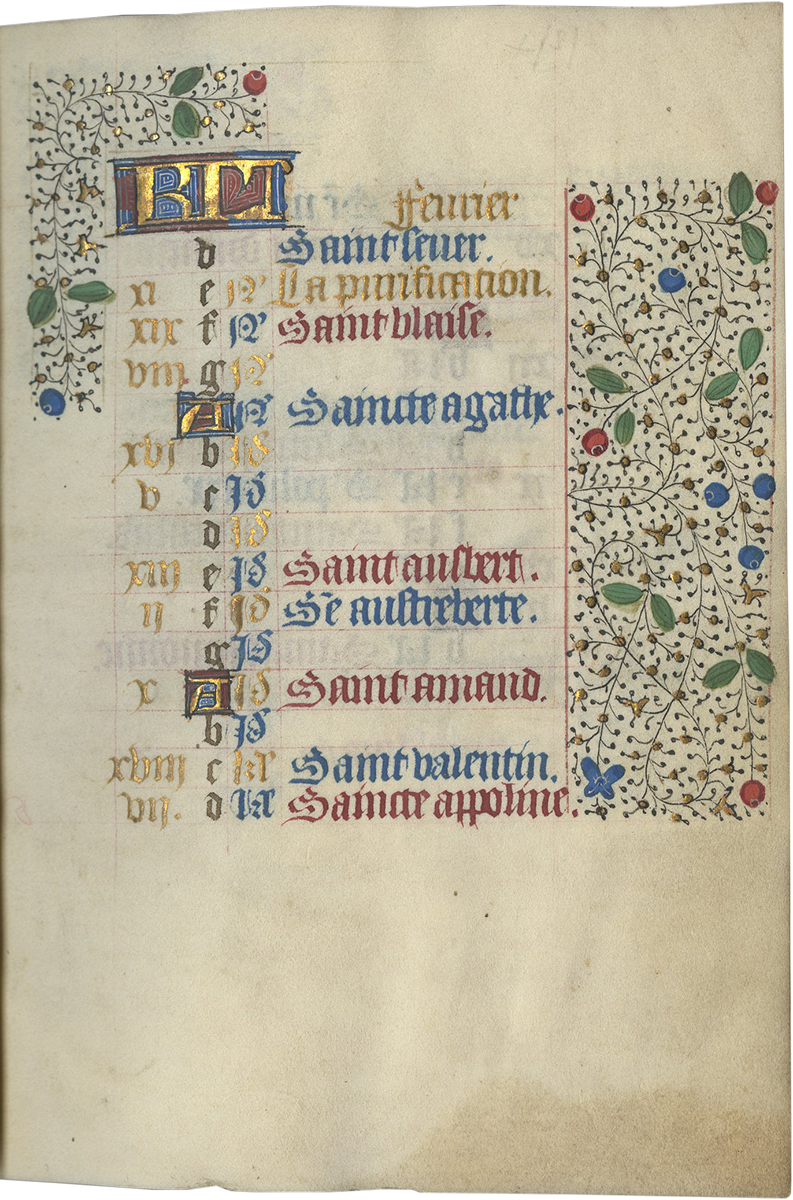 KL Feurier
d Saint seuer.
xi e N La purification.
xix f N Saint blaise.
viii g N
A N Saincte agathe.
xvi b id
v c id
d id
xiii e id Saint ausbert.
ii f id Se austreberte.
g id
x A id Saint amand.
b id
xviii c kl Saint valentin.
vii. d kl Saincte appoline.